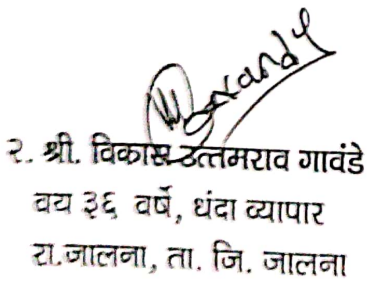 २. श्री. विकास उत्तमराव गावंडे
वय ३६ वर्षे, धंदा व्यापार
रा.जालना, ता. जि. जालना